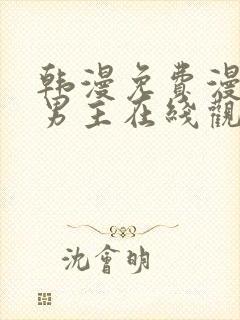 韩漫免費漫
男主在线觀
沈會明